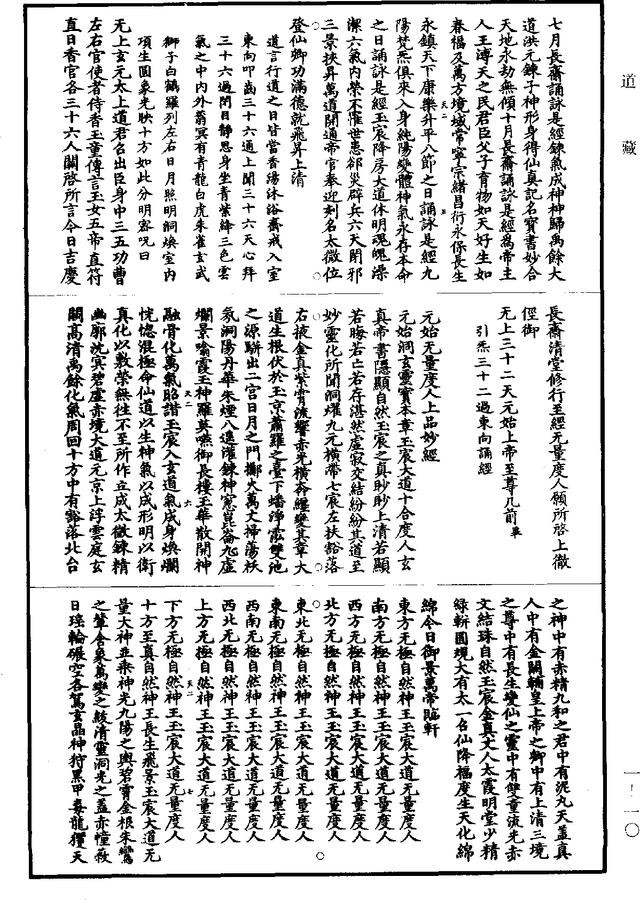 道藏
七月長齋誦詠是經鍊氣成神神歸禹餘大
道洪元鍊子神形身得仙真記名寶書妙合
天地永劫無傾十月長齋誦詠是經爲帝主
人王溥天之民君臣父子育物如天好生如
春福及萬方境域常寧宗緒昌衍永保長生
永鎮天下康樂升平八節之日誦詠是經九
陽梵炁俱來入身純陽變體神氣永存本命
之日誦詠是經玉宸降房大道休明魂魄澡
潔六氣内榮不罹世患郤災辟兵六天閉邪
三景挾昇萬道開通帝官奉迎刻名太微位
登仙卿功滿德就飛昇上清
道言行道之日皆當香湯沐浴齋戒入室
東向叩齒三十六通上聞三十六天心拜
三十六過閉目靜思身坐青紫絳三色雲
氣之中内外蓊冥有青龍白虎朱雀玄武
獅子白鶴羅列左右日月照明洞煥室内
項生圓象光映十方如此分明密呪曰
无上玄元太上道君召出臣身中三五功曹
左右官使者侍香玉童傳言玉女五帝直符
直日香官各三十六人關啓所言今日吉慶
長齋清堂修行至經无量度人願所啓上徹
徑御
无上三十二天元始上帝至尊几前畢
引炁三十二過東向誦經
元始无量度人上品妙經
元始洞玄靈寶本章玉宸大道十合度人玄
真帝書隱顯自然玉宸之真眇眇上清若顯
若晦若亡若存湛然虛寂交結紛紛其道至
妙靈化所聞洞燿九元橫帶七宸左扶豁落
右掖金真紫霄流響赤光橫奔纏變其章大
道生根伏於玉京蕭羅之臺下蟠浄㲾雙池
之源駢出二宮日月之門擲火萬丈掃蕩袄
氛洞陽丹華朱煙八進灌鍊神憲崑崙九虛
爛景喻霞玉神羅英嚥御長樓玉華散開神
融骨化萬氣昭諧玉宸入玄道氣成身煥爛
恍惚混極命仙道以生神氣以成形明以衛
真化以敷榮無往不至所作立成太微鍊精
幽廓沈冥碧虛赤境大道元京上浮雲庭玄
關高清禹餘化炁周回十方中有豁落北台
之神中有赤精九和之君中有泥丸天蓋真
人中有金闕輔皇上帝之卿中有上清三境
之尊中有長生變仙之靈中有雙童流光赤
文結珠自然玉宸金真丈人太霞明堂少精
緑軿圓規大有太一召仙降福度生天化綿
綿今日御景萬帝臨軒
東方无極自然神王玉宸大道无量度人
南方无極自然神王玉宸大道无量度人
西方无極自然神王玉宸大道无量度人
北方无極自然神王玉宸大道无量度人
東北无極自然神王玉宸大道无量度人
東南无極自然神王玉宸大道无量度人
西南无極自然神王玉宸大道无量度人
西北无極自然神王玉宸大道无量度人
上方无極自然神王玉宸大道无量度人
下方无極自然神王玉宸大道无量度人
十方至真自然神王長生飛景玉宸大道无
量大神並乘神光九陽之輿碧霄金根朱鸞
之輦含象萬變之綾清靈洞光之蓋赤幢蔽
日瑤輪碾空各駕玄晶神狩黑甲毒龍玃天
一–一〇